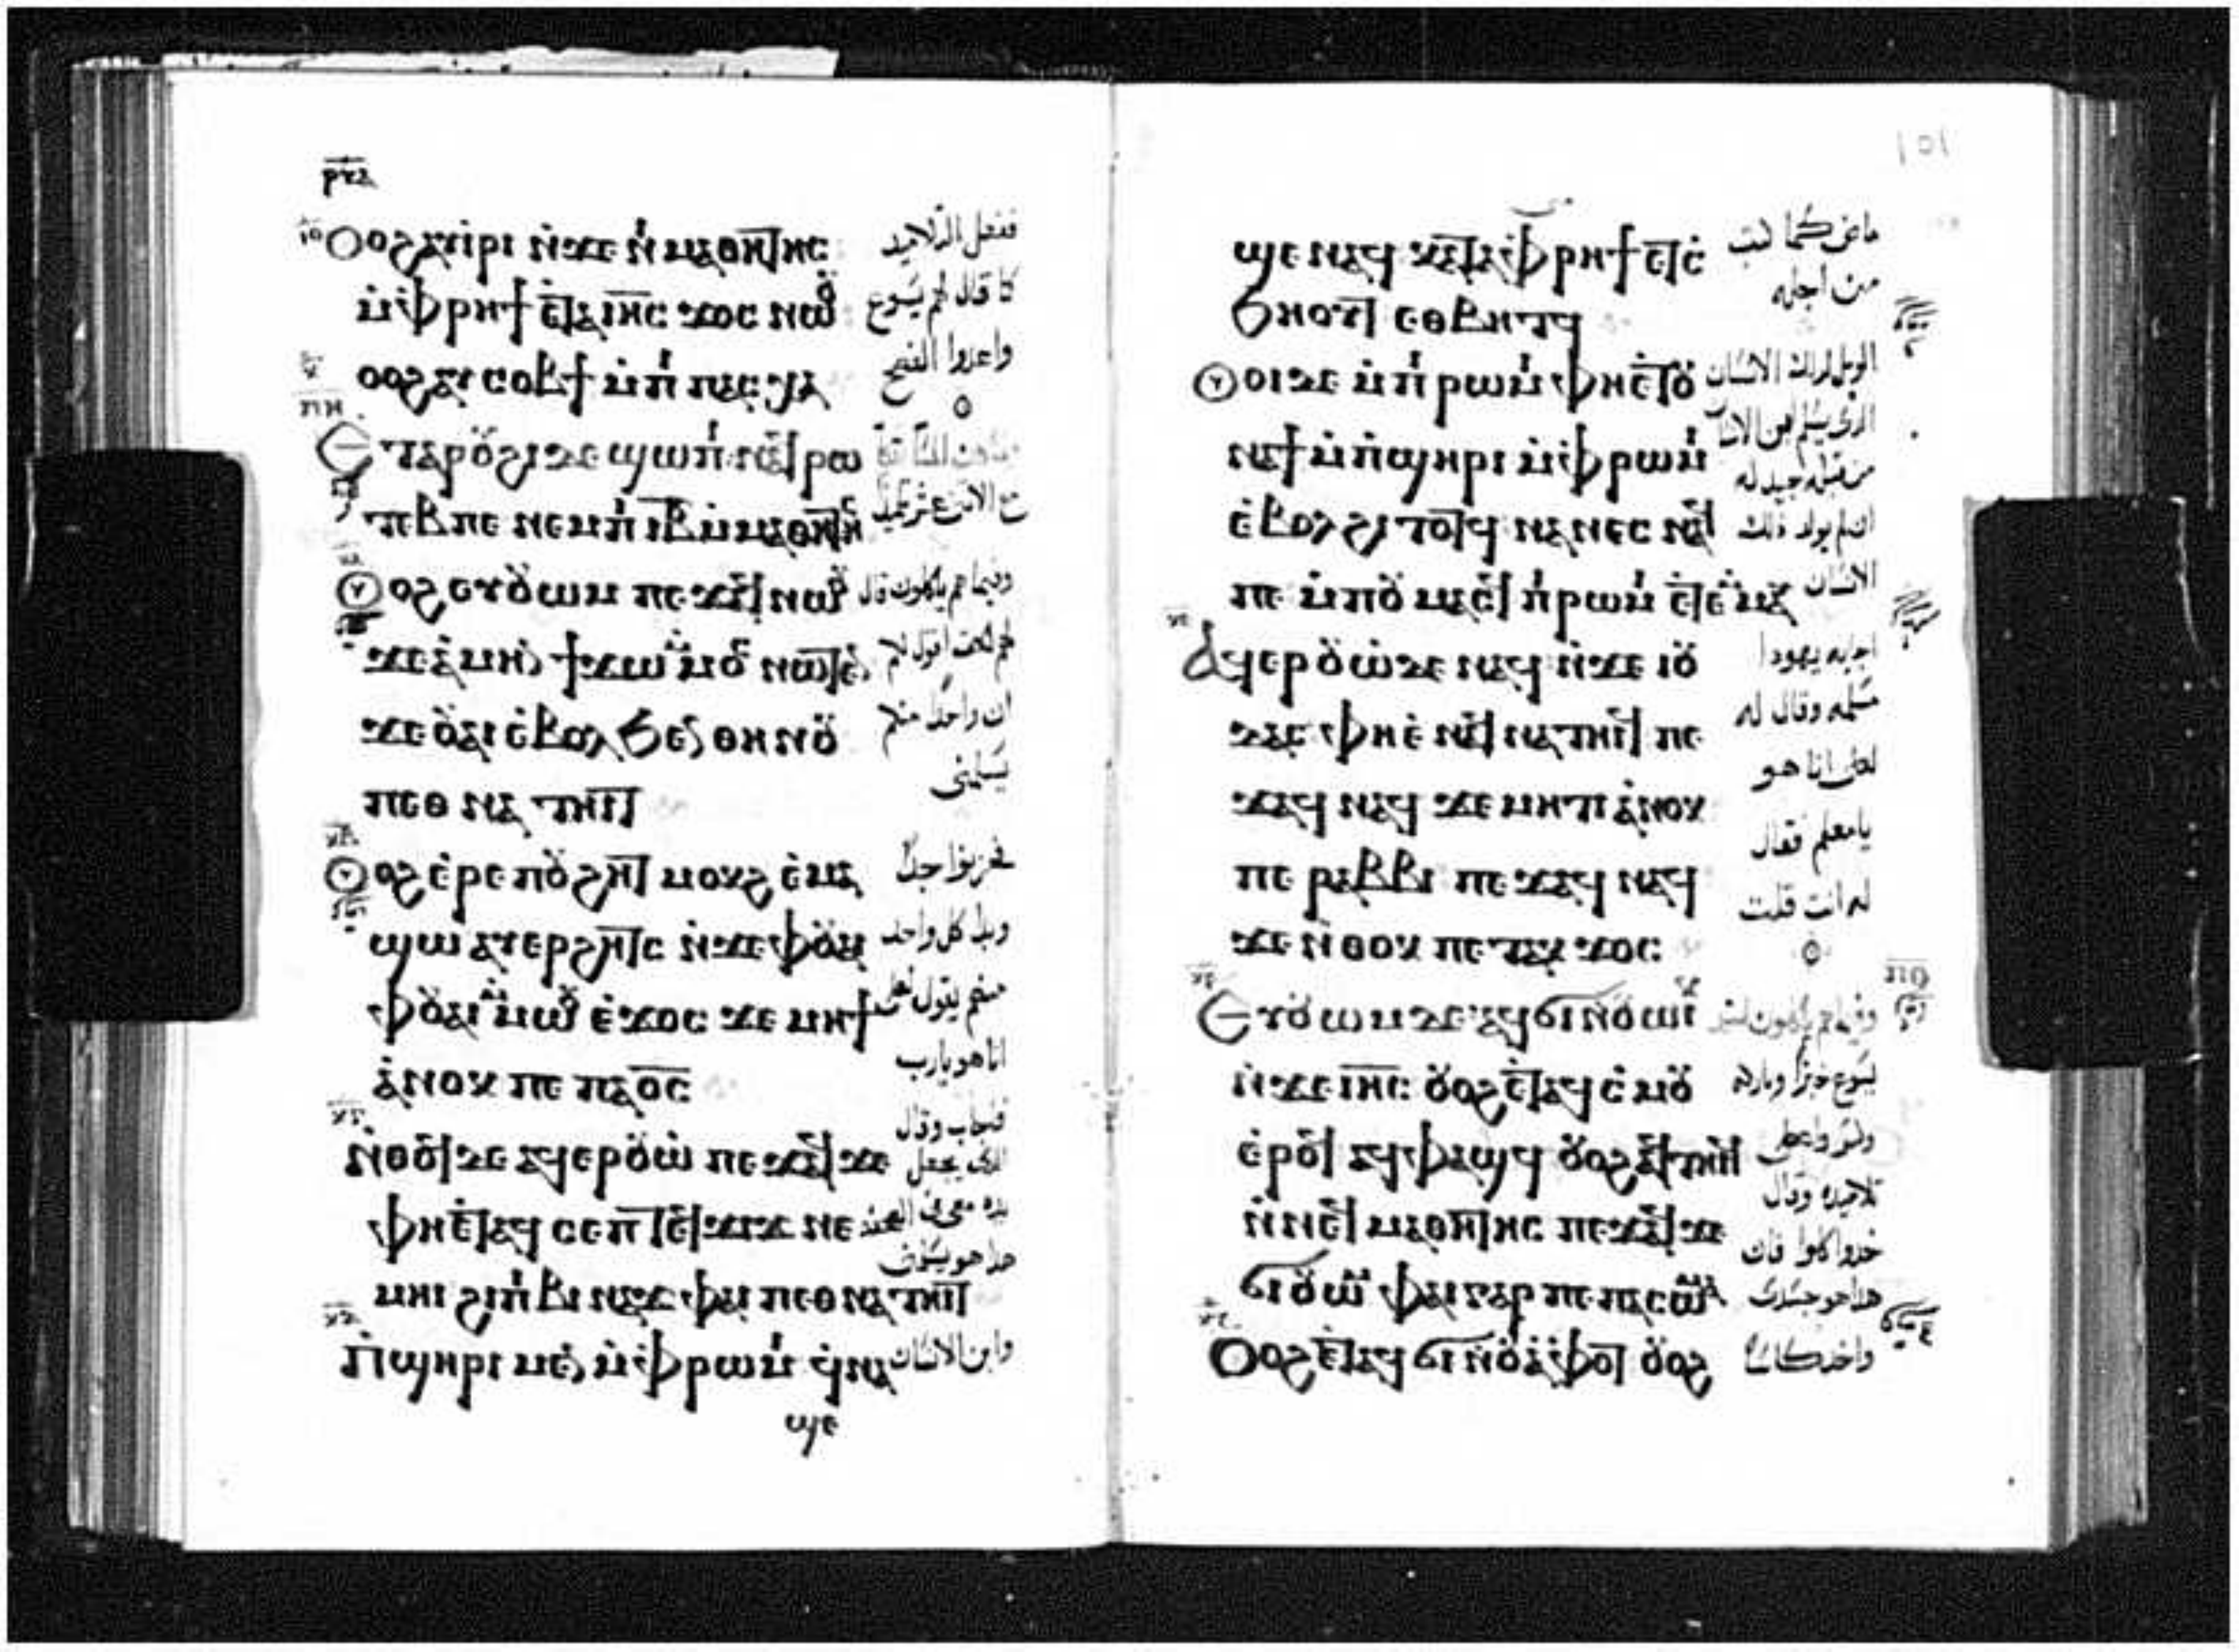 ⲟⲩⲟϩ ⲁⲩⲓⲣⲓ ⲛϫⲉ ⲛⲓⲙⲁⲑⲏⲧⲏⲥ
ففعل التلاميد
ⲙⲫⲣⲏϯ ⲉⲧⲁ ⲓⲏⲥ ϫⲟⲥ ⲛⲱⲟⲩ
كما قال لهم يسوع
ⲟⲩⲟϩ ⲁⲩⲥⲟⲃϯ ⲙⲡⲓⲡⲁⲥⲭⲁ
واعدوا الفصح
ⲉⲧⲁ ⲣⲟⲩϩⲓ ⲇⲉ ϣⲱⲡⲓ ⲛⲁϥⲣⲱ
ⲧⲉⲃ ⲡⲉ ⲛⲉⲙ ⲡⲓⲓⲃ ⲙⲙⲁⲑⲏⲧⲏⲥ
ⲟⲩⲟϩ ⲉⲩⲟⲩⲱⲙ ⲡⲉϫⲁϥ ⲛⲱⲟⲩ
وفيما هم ياكلون قال
ϫⲉ ⲁⲙⲏⲛ ϯϫⲱ ⲙⲙⲟⲥ ⲛⲱⲧⲉⲛ
لهم الحق اقول لكم
ϫⲉ ⲟⲩⲁⲓ ⲉⲃⲟⲗ ϧⲉⲛ ⲑⲏⲛⲟⲩ
ان واحدا منكم
ⲡⲉⲑⲛⲁⲧⲏⲓⲧ
يسلمني
ⲟⲩⲟϩ ⲉⲣⲉ ⲡⲟⲩϩⲏⲧ ⲙⲟⲕϩ ⲉⲙⲁ
فحزنوا جدا
ϣⲱ ⲁⲩⲉⲣϩⲏⲧⲥ ⲛϫⲉ ⲫⲟⲩⲁⲓ
وبدا كل واحد
ⲫⲟⲩⲁⲓ ⲙⲙⲱⲟⲩ ⲉϫⲟⲥ ϫⲉ ⲙⲏϯ
منهم يقول لعلي
ⲁⲛⲟⲕ ⲡⲉ ⲡⲁⲟⲥ
انا هو يارب
ⲛⲑⲟϥ ⲇⲉ ⲁϥⲉⲣⲟⲩⲱ ⲡⲉϫⲁϥ ϫⲉ
فاجاب وقال
الذي يجعل
ⲫⲏⲉⲧⲁϥⲥⲉⲡ ⲧⲉϥϫⲓϫ ⲛⲉ
يده معي في
ⲙⲏⲓ ϩⲓ ⲡⲓⲃⲓⲛⲁϫ ⲫⲁⲓ ⲡⲉⲑⲛⲁⲧⲏⲓⲧ
هذا هو
ⲡϣⲏⲣⲓ ⲙⲉⲛ ⲙⲫⲣⲱⲙⲓ ϥⲛⲁ
وابن الانسان
ϣⲉ
ϣⲉ ⲛⲁϥ ⲕⲁⲧⲁ ⲫⲣⲏϯ ⲉⲧⲥ
ماض كما كتب
ϧⲏⲟⲩⲧ ⲉⲑⲃⲏⲧϥ
من اجله
ⲟⲩⲟⲓ ⲇⲉ ⲙⲡⲓⲣⲱⲙⲓ ⲫⲏⲉⲧⲟⲩ
الويل لذلك الانسان
ⲛⲁϯ ⲙⲡϣⲏⲣⲓ ⲙⲫⲣⲱⲙⲓ
الذي يسلم ابن الانسان
ⲉⲃⲟⲗ ϩⲓⲧⲟⲧϥ ⲛⲁⲛⲉⲥ ⲛⲁϥ
من قبله جيد له
ان لم يولد ذلك
ⲡⲉ ⲙⲡⲟⲩⲙⲁⲥϥ ⲡⲓⲣⲱⲙⲓ ⲉⲧⲉⲙⲙⲁⲩ
الانسان
ⲁϥⲉⲣⲟⲩⲱ ⲇⲉ ⲛⲁϥ ⲛϫⲉ ⲓⲟⲩ
اجابه يهودا
ⲇⲁⲥ ⲫⲏ ⲉⲛⲁϥⲛⲁⲧⲏⲓϥ ⲡⲉ
مسلمه وقال له
ϫⲁϥ ⲛⲁϥ ϫⲉ ⲙⲏⲧⲓ ⲁⲛⲟⲕ
لعلي انا هو
ⲡⲉ ⲣⲁⲃⲃⲓ ⲡⲉϫⲁϥ ⲛⲁϥ
يامعلم فقال
ϫⲉ ⲛⲑⲟⲕ ⲡⲉⲧⲁⲕϫⲟⲥ
له انت قلت
ⲉⲩⲟⲩⲱⲙ ⲇⲉ ⲁϥϭⲓ ⲛⲟⲩⲱⲓⲕ
وفيما هم ياكلون اخذ
ⲛϫⲉ ⲓⲏⲥ ⲟⲩⲟϩ ⲉⲧⲁϥⲥⲙⲟⲩ
يسوع خبزا وباركه
ⲉⲣⲟϥ ⲁϥⲫⲁϣϥ ⲟⲩⲟϩ ⲁϥⲧⲏⲓϥ
وقسم واعطى
ⲛⲛⲉϥⲙⲁⲑⲏⲧⲏⲥ ⲡⲉϫⲁϥ ϫⲉ
تلاميده وقال
ϭⲓ ⲟⲩⲱⲙ ⲫⲁⲓ ⲅⲁⲣ ⲡⲉ ⲡⲁⲥⲱⲙⲁ
خدوا كلوا فان
هذا هو جسدي
ⲟⲩⲟϩ ⲉⲧⲁϥϭⲓ ⲛⲟⲩⲁⲫⲟⲧ ⲟⲩⲟϩ
واخد كاسا